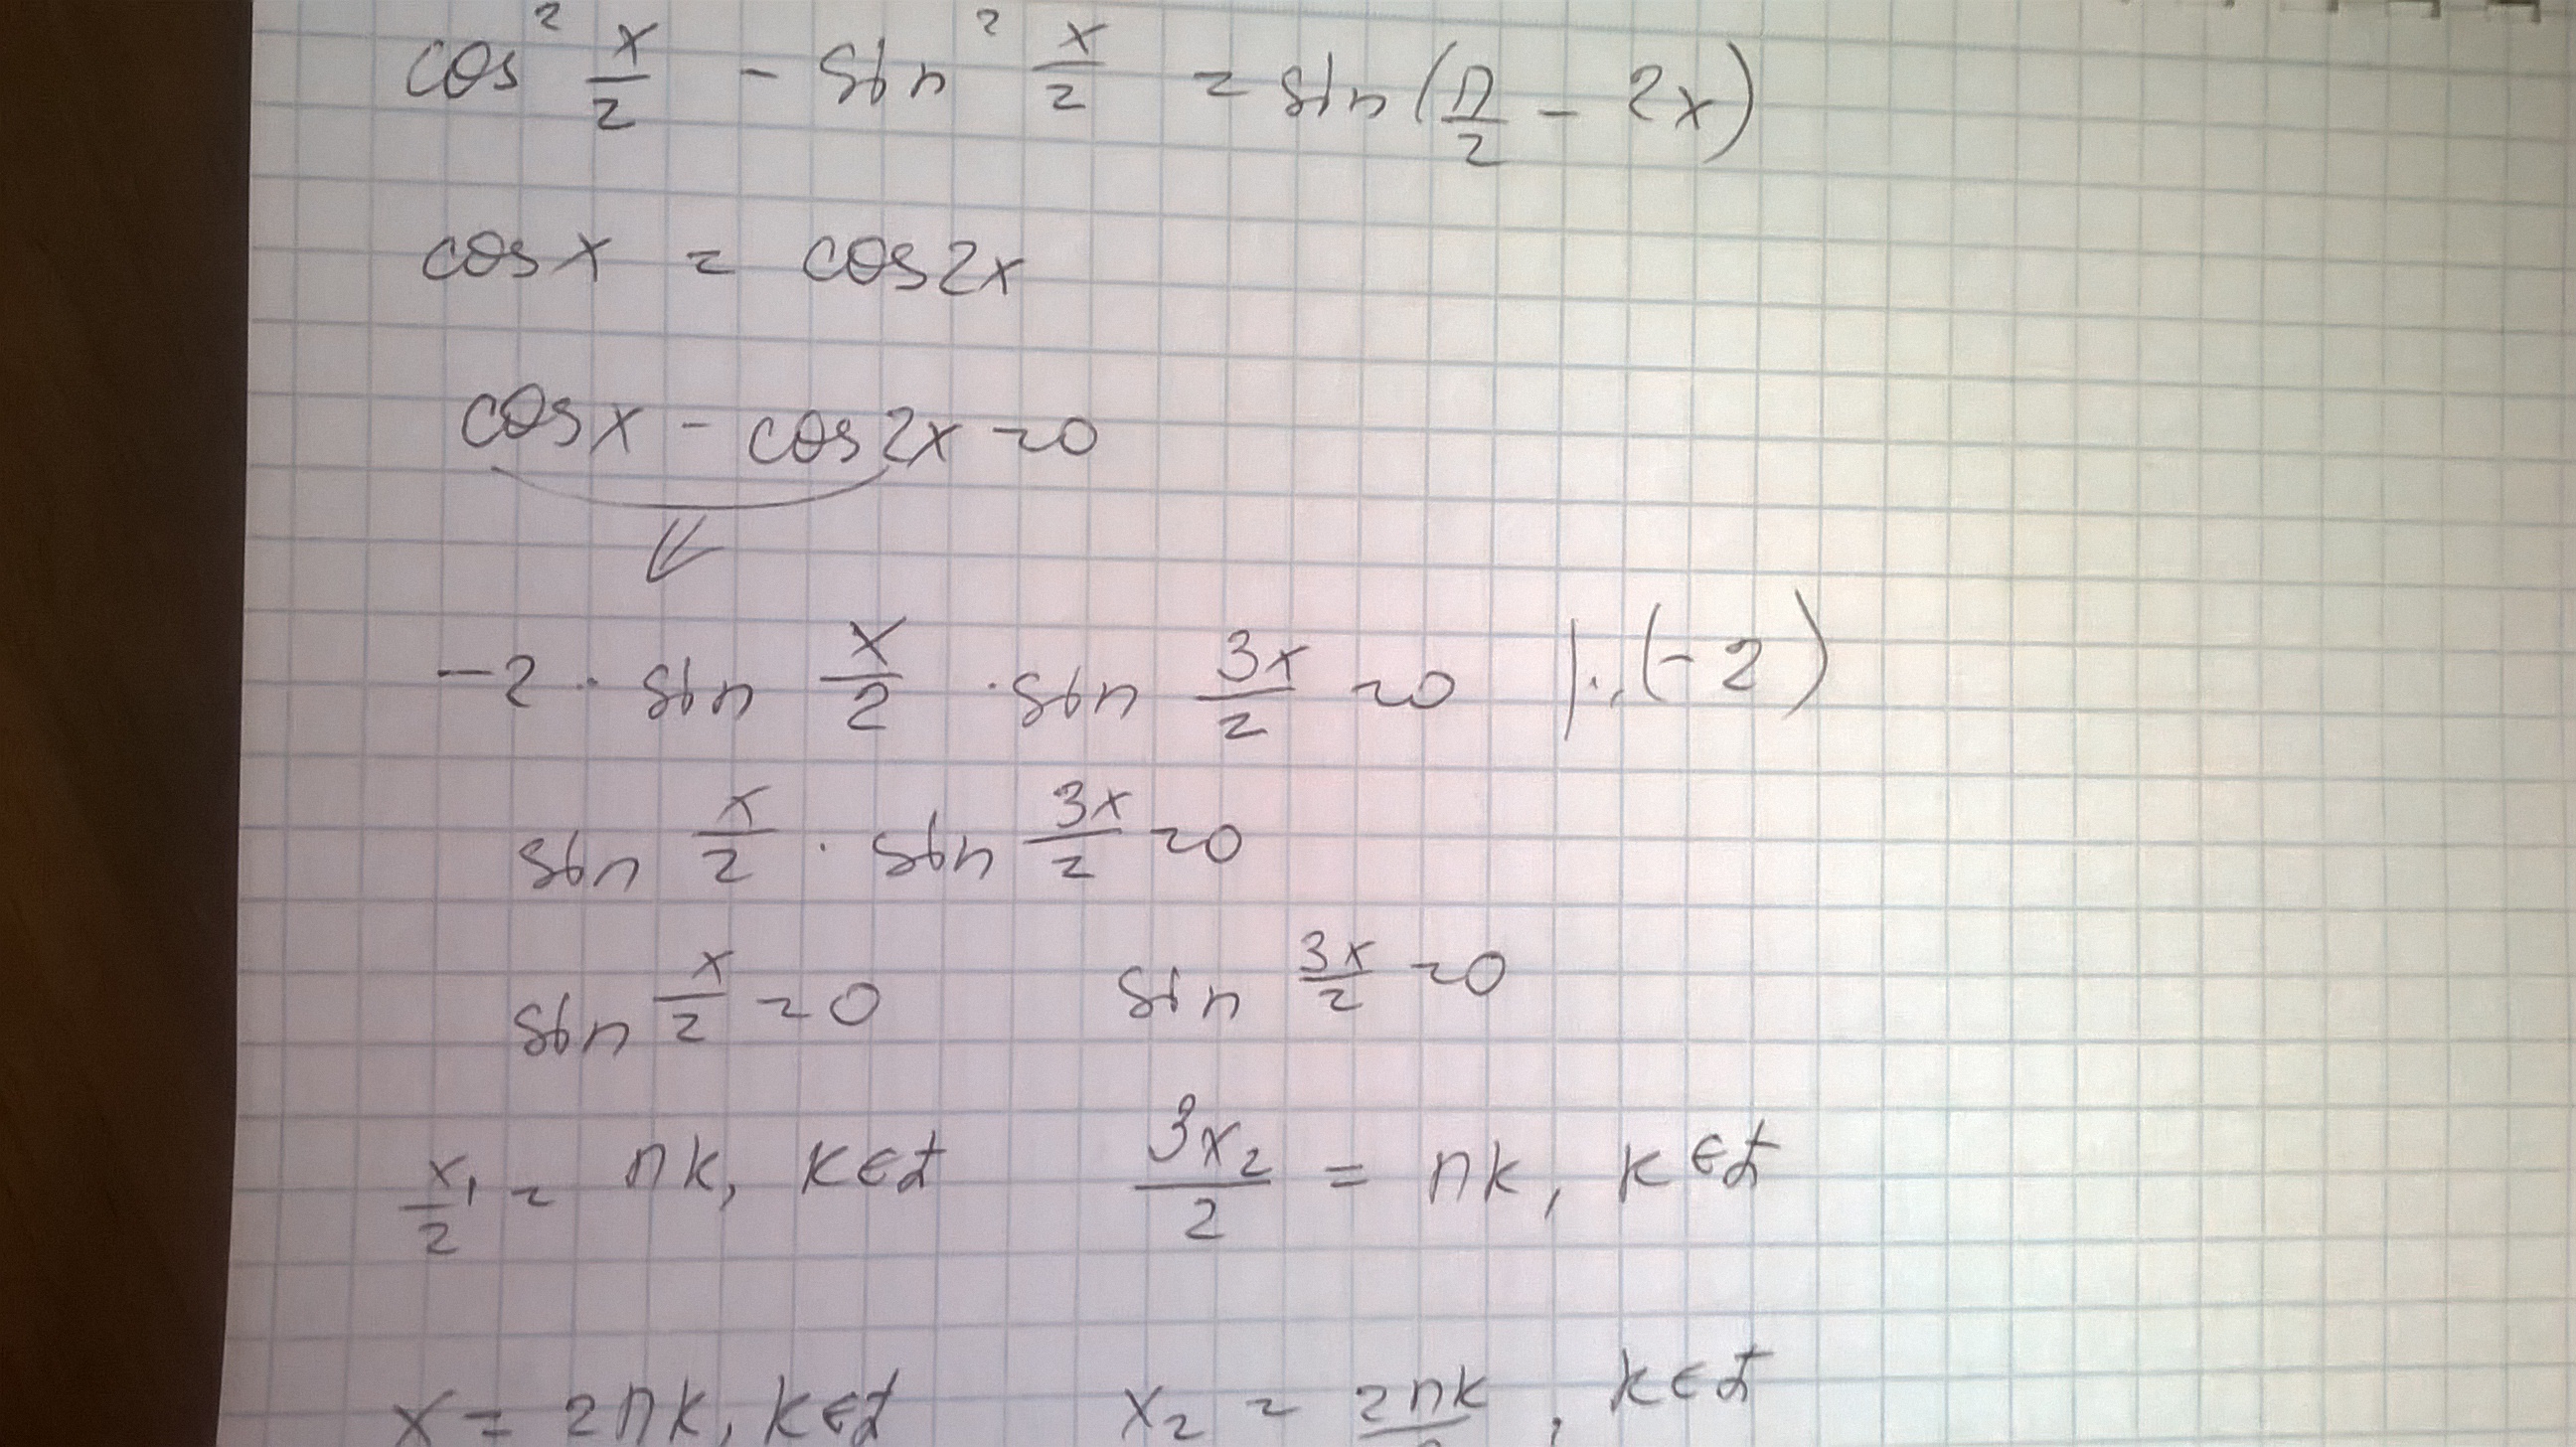 cos² x/2 - sin² x/2 = sin(π/2 - 2x)
cosx = cos2x
cosx - cos2x = 0
-2 · sin x/2 · sin 3x/2 = 0 | : (-2)
sin x/2 · sin 3x/2 = 0
sin x/2 = 0 sin 3x/2 = 0
x₁/2 = πk, k∈Z 3x₂/2 = πk, k∈Z
x = 2πk, k∈Z x₂ = 2πk/, k∈Z